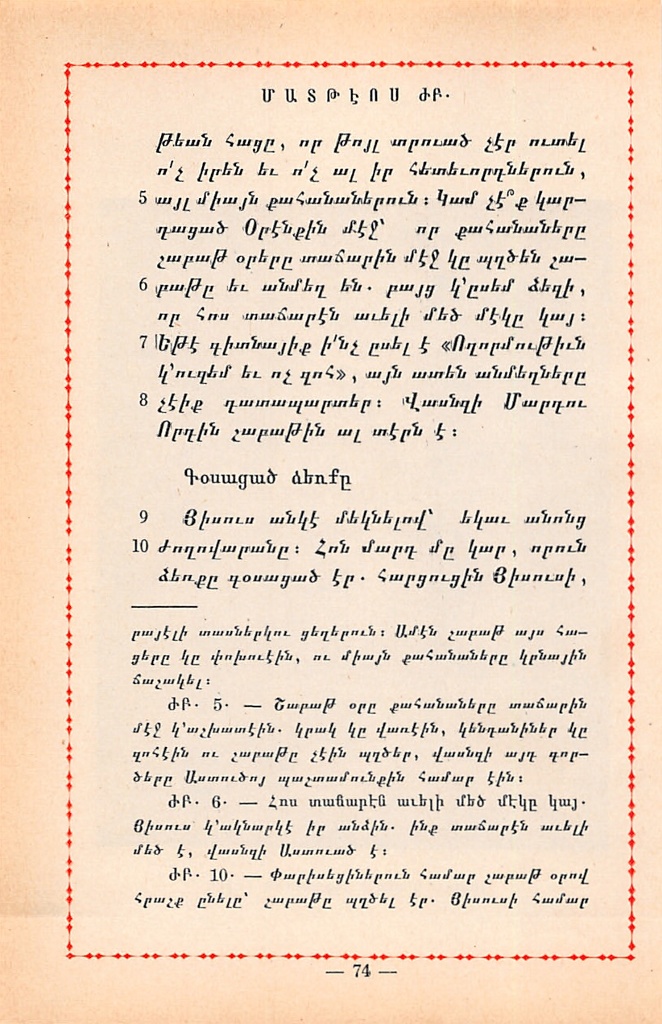 ՄԱՏԹԷՈՍ ԺԲ.
թեան հացը, որ թոյլ տրուած չէր ուտել
ո՛չ իրեն եւ ո՛չ ալ իր հետեւորդներուն,
5 այլ միայն քահանաներուն։ Կամ չէ՞ք կար-
դացած Օրէնքին մէջ՝ որ քահանաները
շաբաթ օրերը տաճարին մէջ կը պղծեն շա-
6 բաթը եւ անմեղ են. բայց կ՚ըսեմ ձեզի,
որ հոս տաճարէն աւելի մեծ մէկը կայ։
7 Եթէ գիտնայիք ի՛նչ ըսել է «Ողորմութիւն
կ՚ուզեմ եւ ոչ զոհ», այն ատեն անմեղները
8 չէիք դատապարտեր։ Վասնզի Մարդու
Որդին շաբաթին ալ տէրն է։
Գօսացած ձեռքը
9 Յիսուս անկէ մեկնելով՝ եկաւ անոնց
10 ժողովարանը։ Հոն մարդ մը կար, որուն
ձեռքը գօսացած էր. հարցուցին Յիսուսի,
րայէլի տասներկու ցեղերուն։ Ամէն շաբաթ այս հա-
ցերը կը փոխուէին, ու միայն քահանաները կրնային
ճաշակել։
ԺԲ. 5. — Շաբաթ օրը քահանաները տաճարին
մէջ կ՚աշխատէին. կրակ կը վառէին, կենդանիներ կը
զոհէին ու շաբաթը չէին պղծեր, վասնզի այդ գոր-
ծերը Աստուծոյ պաշտամունքին համար էին։
ԺԲ. 6. — Հոս տաճարէն աւելի մեծ մէկը կայ.
Յիսուս կ՚ակնարկէ իր անձին. ինք տաճարէն աւելի
մեծ է, վասնզի Աստուած է։
ԺԲ. 10. — Փարիսեցիներուն համար շաբաթ օրով
հրաշք ընելը՝ շաբաթը պղծել էր. Յիսուսի համար
— 74 —